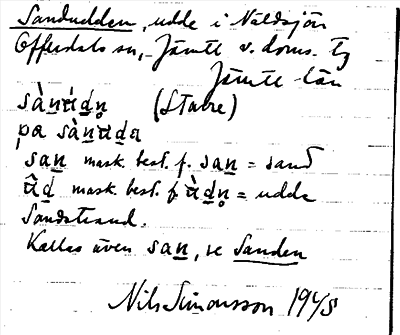 Sandudden, udde i Näldsjön
Offerdals sn, Jämtl v. doms. tg
Jämtl. län
sàn̲ʉ́d̲n̥ (Stavre)
pa sàn̲ʉd̲a
san̲ mask. best. f. san̲ = sand
ʉ̂d̲ mask. best. f ʉ̀d̲n̥ = udde
Sandstrand.
Kallas även san̲, se Sanden
Nils Simonsson 1945